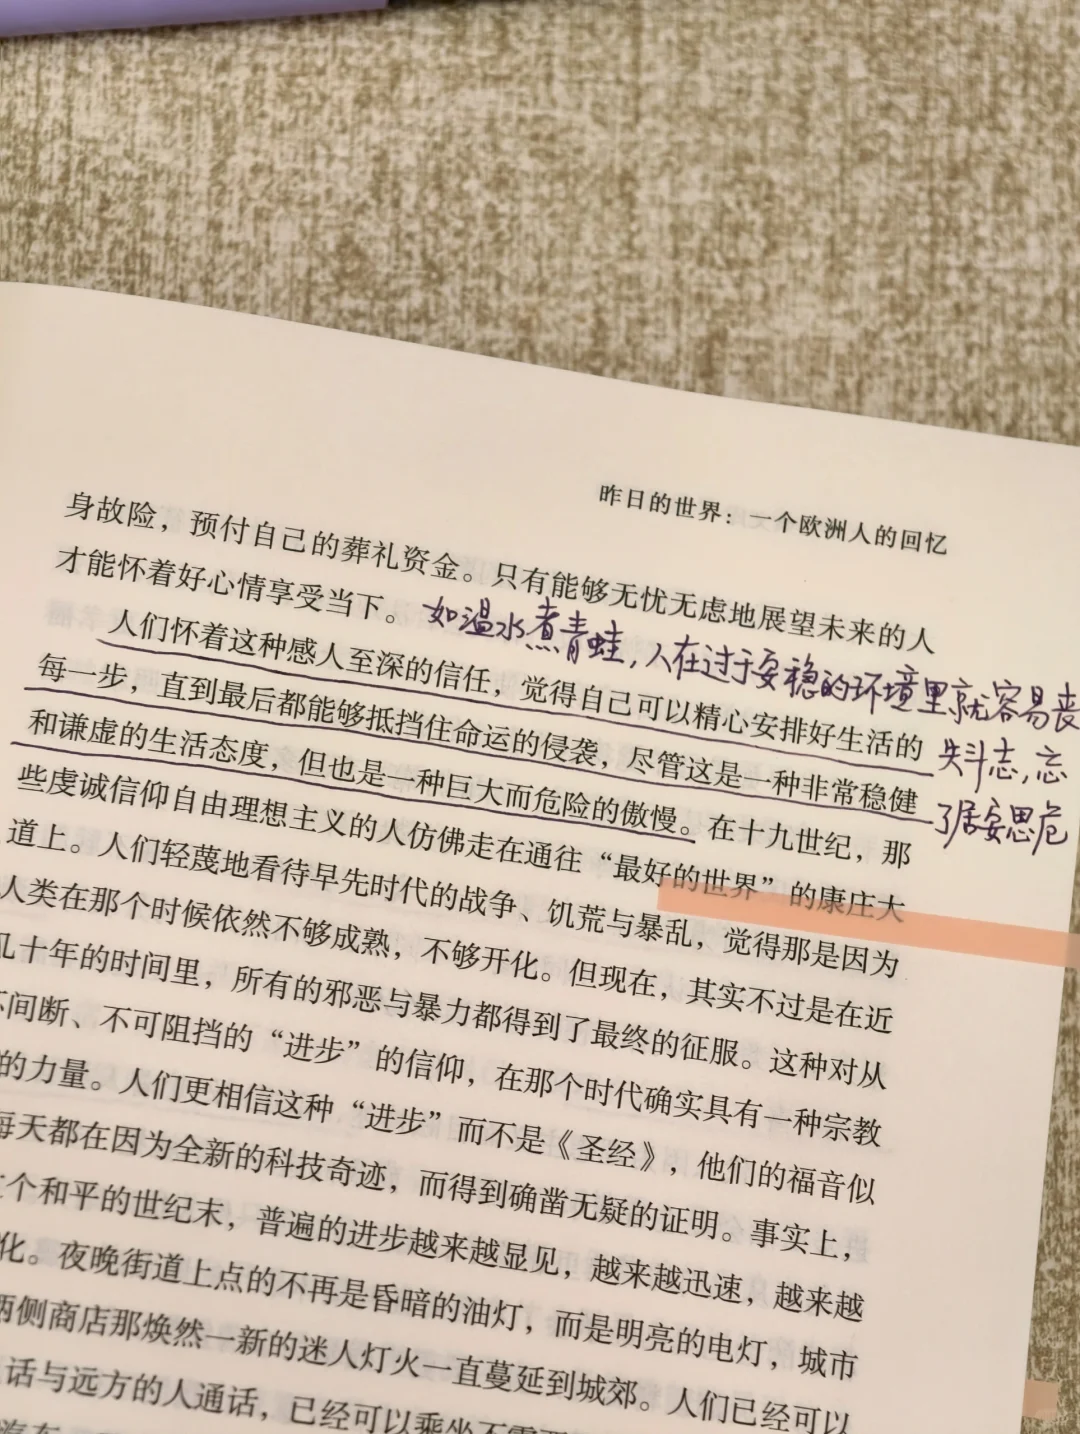 昨日的世界：一个欧洲人的回忆
身故险，预付自己的葬礼资金。只有能够无忧无虑地展望未来的人
才能怀着好心情享受当下。
如温水煮青蛙，人在过于安稳的环境里就容易丧
失斗志，忘
了居安思危
人们怀着这种感人至深的信任，觉得自己可以精心安排好生活的
每一步，直到最后都能够抵挡住命运的侵袭，尽管这是一种非常稳健
和谦虚的生活态度，但也是一种巨大而危险的傲慢。在十九世纪，那
些虔诚信仰自由理想主义的人仿佛走在通往“最好的世界”的康庄大
道上。人们轻蔑地看待早先时代的战争、饥荒与暴乱，觉得那是因为
人类在那个时候依然不够成熟，不够开化。但现在，其实不过是在近
几十年的时间里，所有的邪恶与暴力都得到了最终的征服。这种对从
不间断、不可阻挡的“进步”的信仰，在那个时代确实具有一种宗教
的力量。人们更相信这种“进步”而不是《圣经》，他们的福音似
每天都在因为全新的科技奇迹，而得到确凿无疑的证明。事实上，
个和平的世纪末，普遍的进步越来越显见，越来越迅速，越来越
化。夜晚街道上点的不再是昏暗的油灯，而是明亮的电灯，城市
两侧商店那焕然一新的迷人灯火一直蔓延到城郊。人们已经可以
话与远方的人通话，已经可以乘坐不需